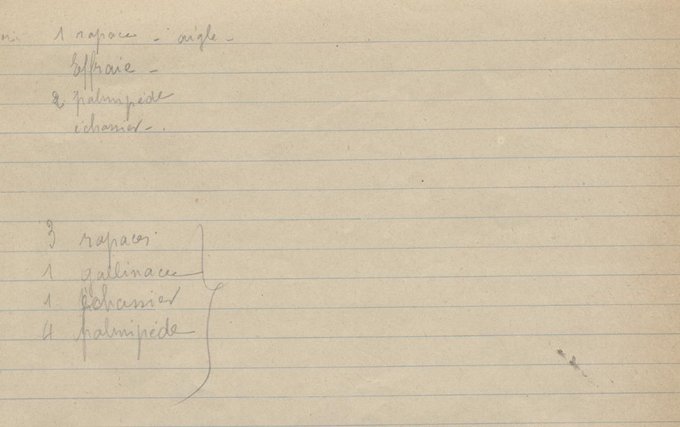 1 rapaces - aigle -
Effraie -
2 palmipède
échassier -.
3 rapaces
1 gallinacée
1 échassier
4 palmipède